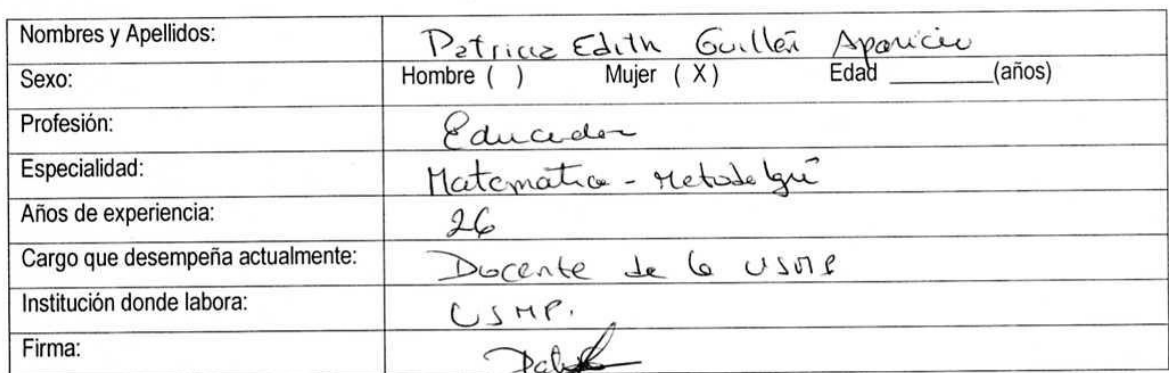 Nombres y Apellidos: Patricia Edith Guillén Aparicio
Sexo: Hombre ( ) Mujer ( X ) Edad ________(años)
Profesión: Educador
Especialidad: Matematica - Metodología
Años de experiencia: 26
Cargo que desempeña actualmente: Docente de la USMP
Institución donde labora: USMP.
Firma: